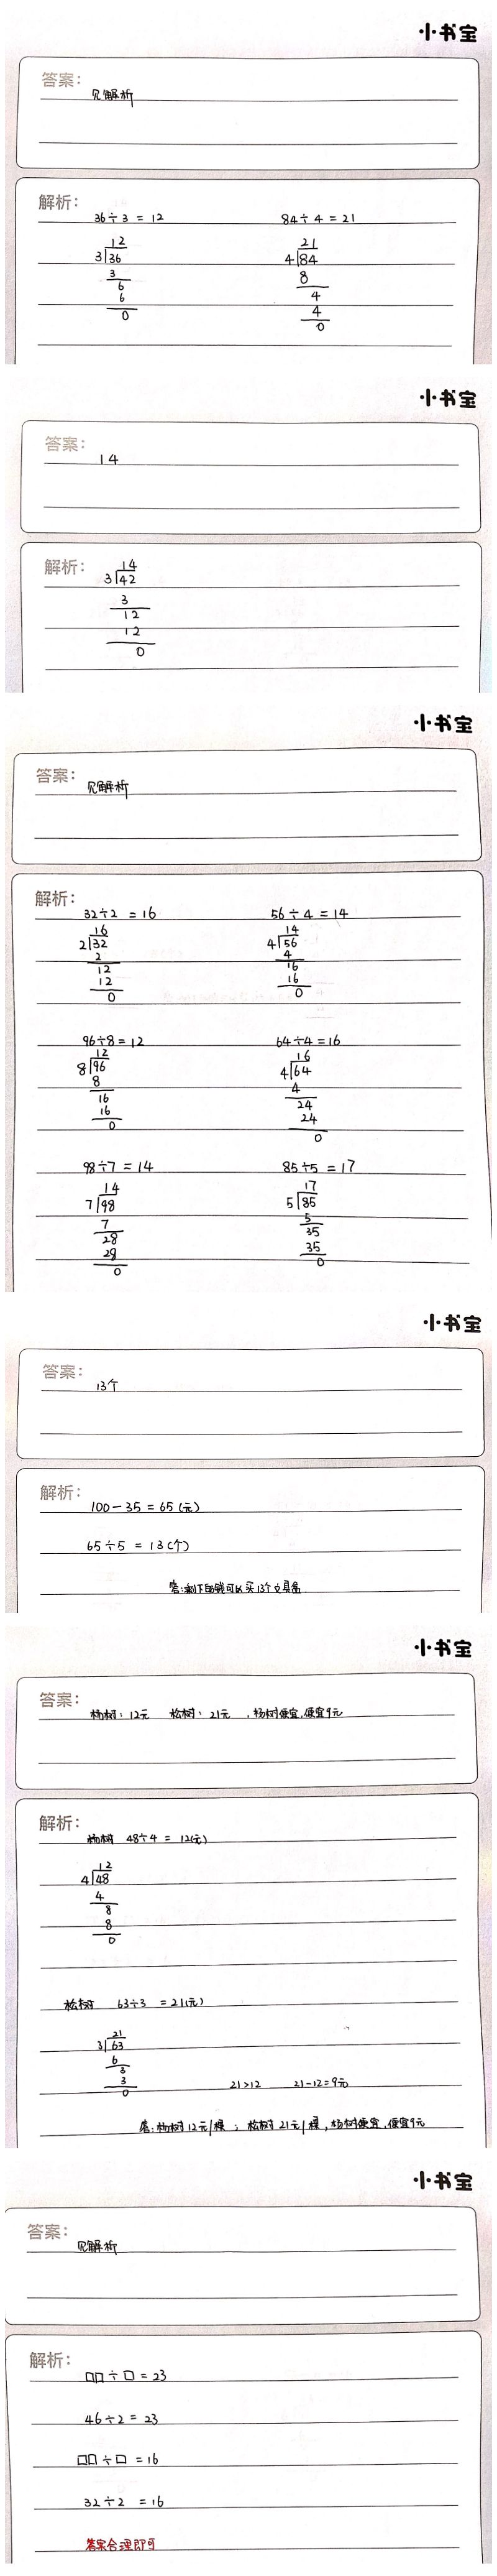 小书宝
答案：
见解析
解析：
36÷3 = 12 84÷4 = 21
12 21
3 36 4 84
3 8
6 4
6 4
0 0
小书宝
答案：
14
解析：
14
3 42
3
12
12
0
小书宝
答案：
见解析
解析：
32÷2 = 16 56÷4 = 14
16 14
2 32 4 56
2 4
12 16
12 16
0 0
96÷8 = 12 64÷4 = 16
12 16
8 96 4 64
8 4
16 24
16 24
0 0
98÷7 = 14 85÷5 = 17
14 17
7 98 5 85
7 5
28 35
28 35
0 0
小书宝
答案：
13个
解析：
100-35 = 65(元)
65÷5 = 13(个)
答:剩下的钱可以买13个文具盒
小书宝
答案：
杨树：12元 松树：21元 ,杨树便宜,便宜9元
解析：
杨树 48÷4 = 12(元)
12
4 48
4
8
8
0
松树 63÷3 = 21(元)
21
3 63
6
3
3
0
21>12 21-12=9元
答:杨树12元/棵；松树21元/棵,杨树便宜,便宜9元
小书宝
答案：
见解析
解析：
□□÷□=23
46÷2=23
□□÷□=16
32÷2 =16
答案合理即可